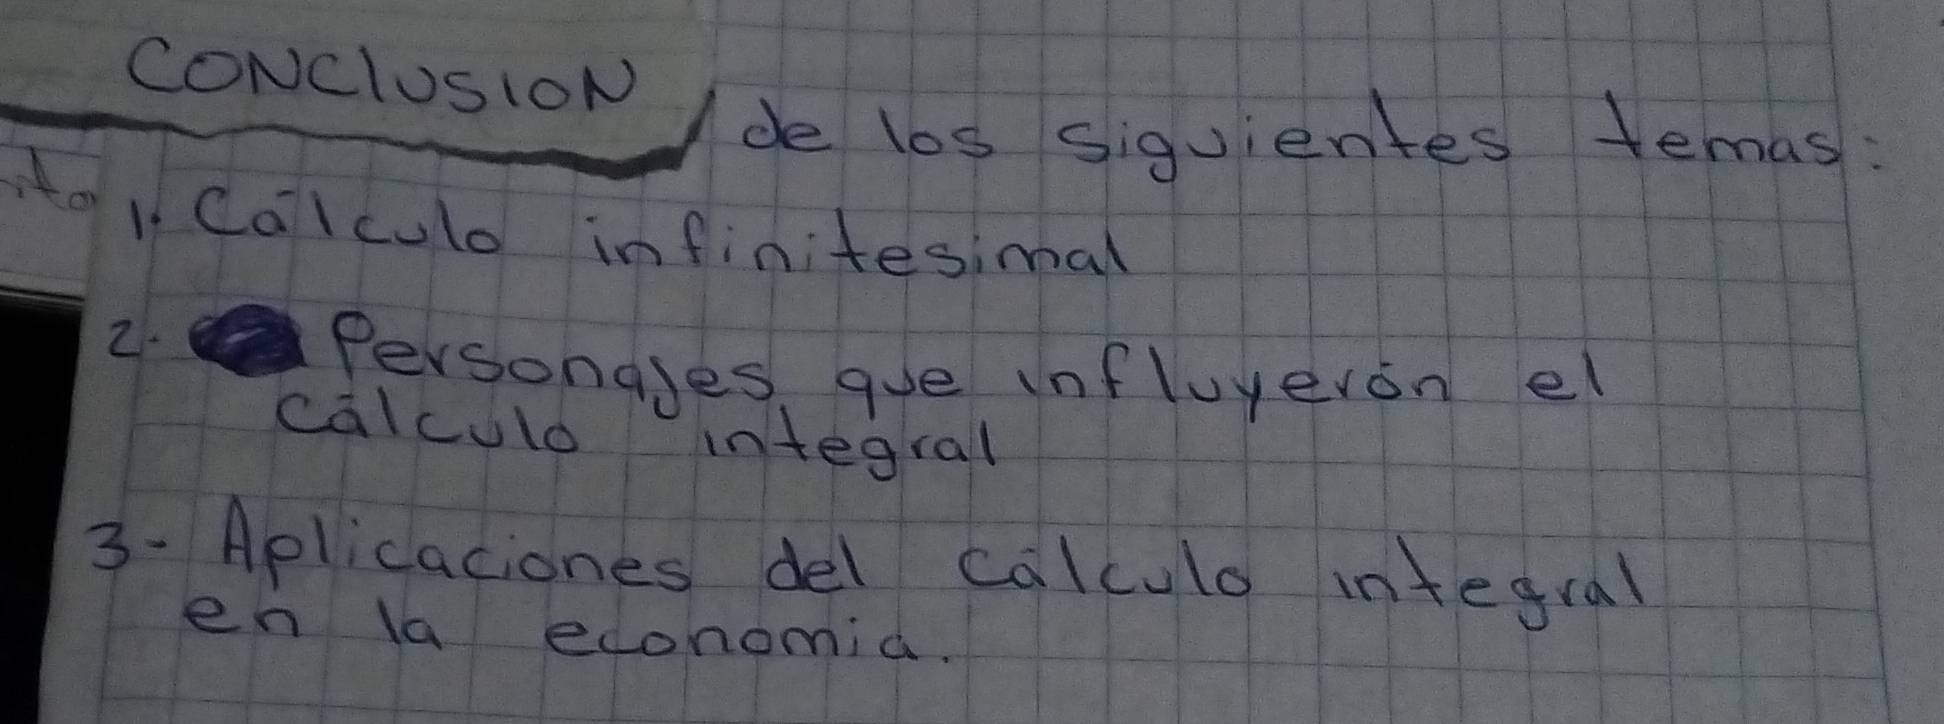 CONCLUSION de los siguientes temas:
1. Cálculo infinitesimal
2. Personajes que influyerón el
cálculo integral
3- Aplicaciones del cálculo integral
en la economia.